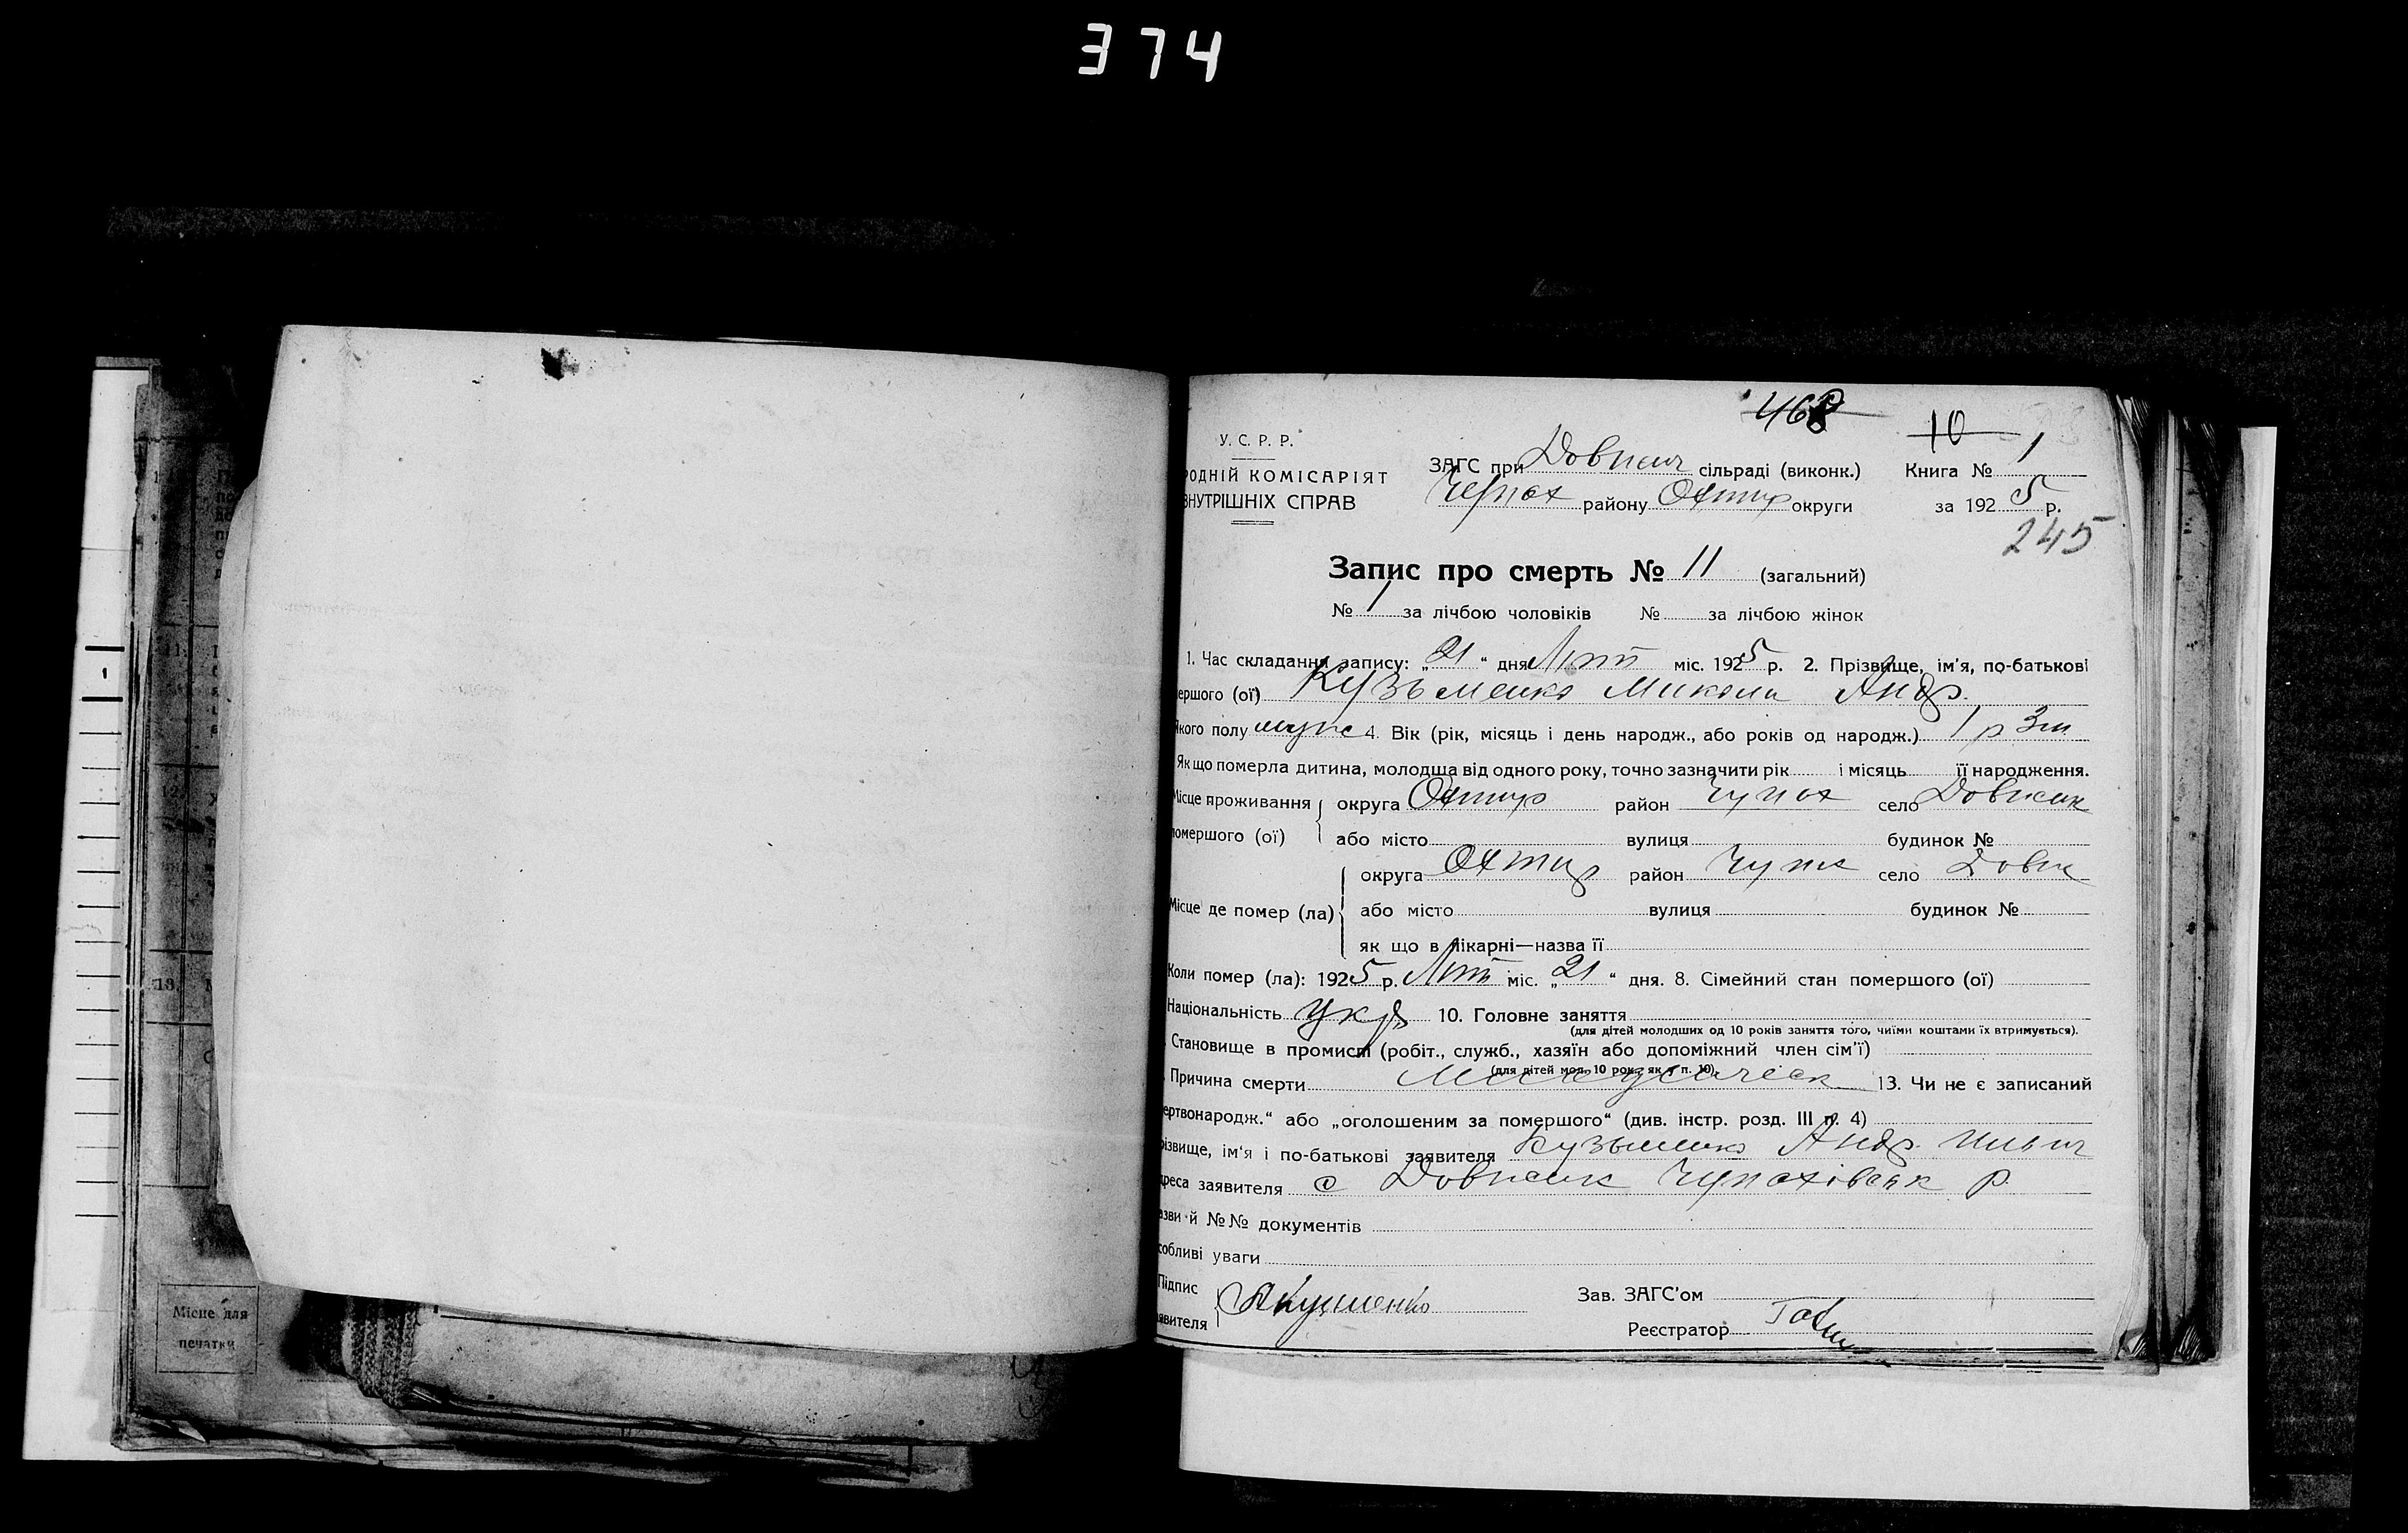 374
468
10
У. С. Р. Р.
РОДНІЙ КОМІСАРІЯТ
ВНУТРІШНІХ СПРАВ
ЗАГС при сільраді (виконк.)
Книга № 1
Чупах району Охтир округи
за 1925 р.
245
Запис про смерть № 11 (загальний)
№ 1 за лічбою чоловіків № за лічбою жінок
1. Час складання запису: „21“ дня Лют міс. 1925 р. 2. Прізвище, ім'я, по-батькові
ершого (ої) Кузьменко Микола Андр.
Якого полу муж 4. Вік (рік, місяць і день народж., або років од народж.) 1 р 3 м
Як що померла дитина, молодша від одного року, точно зазначити рік і місяць її народження.
Місце проживання округа Охтир район Чупах село Довжик
помершого (ої) або місто вулиця будинок №
округа Охтир район Чупах село Довж
Місце де помер (ла) або місто вулиця будинок №
як що в лікарні—назва її
Коли помер (ла): 1925 р. Лют міс. „21“ дня. 8. Сімейний стан помершого (ої)
Національність Укр 10. Головне заняття
(для дітей молодших од 10 років заняття того, чиїми коштами їх втримується).
Становище в промислі (робіт., служб., хазяїн або допоміжний член сім'ї)
(для дітей мол. 10 рок. як в п. 10).
Причина смерти 13. Чи не є записаний
ертвонародж.“ або „оголошеним за помершого“ (див. інстр. розд. III п. 4)
різвище, ім'я і по-батькові заявителя Кузьменко Андр
дреса заявителя с Довжик Чупахівськ р
азви й №№ документів
собливі уваги
Підпис
явителя
Зав. ЗАГС'ом
Реєстратор
11.
12.
13.
Місце для
печатки